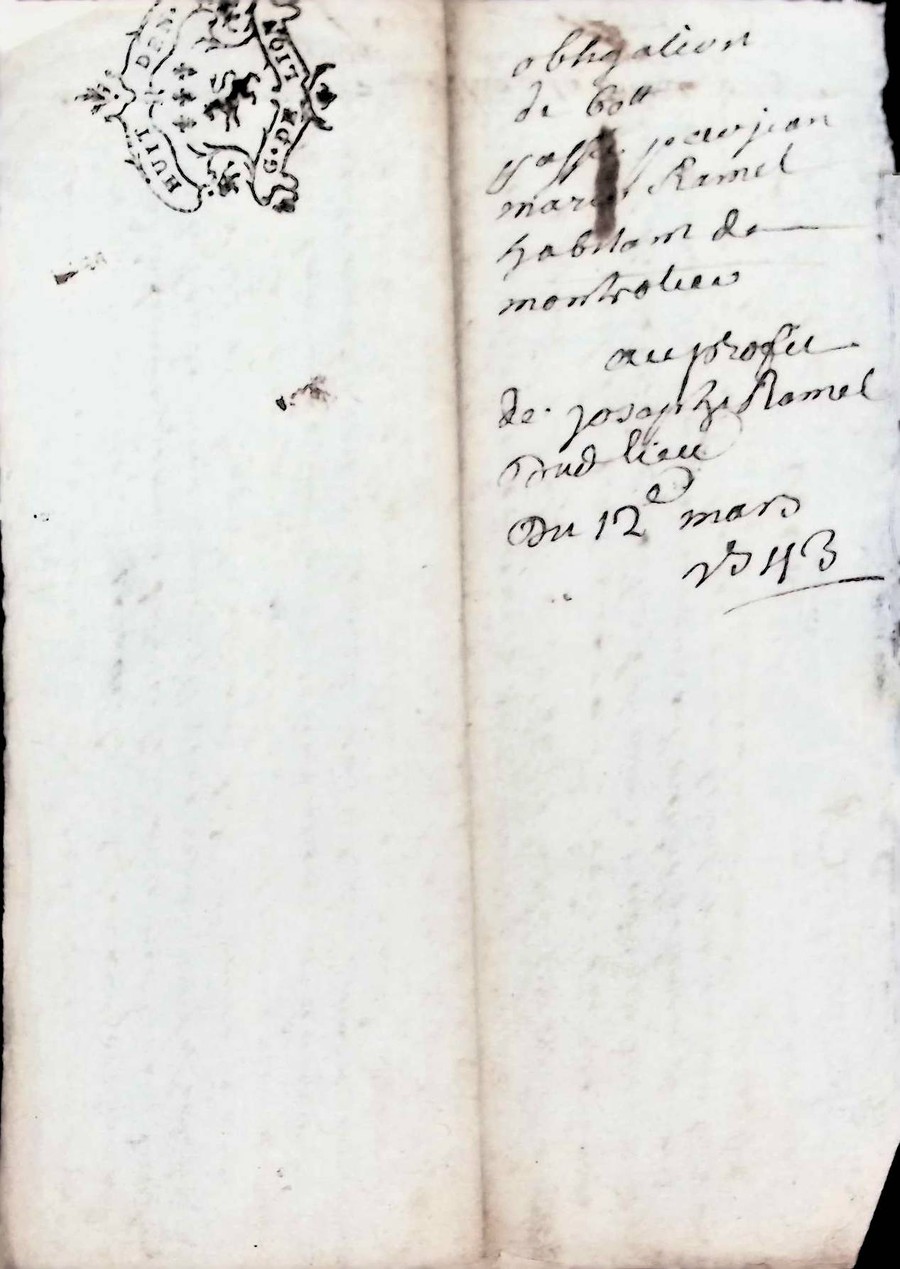 HUIT DEN.
G. DE LION
obligation
de 60ll
passé par jean
marie Ramel
habitant de
montrolieu
au profit
de joseph Ramel
Dud lieu
Du 12e mars
1743